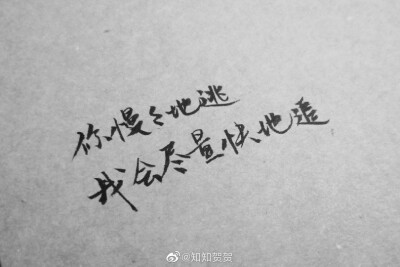 你慢々地逃
我会尽量快地追
@知知贺贺